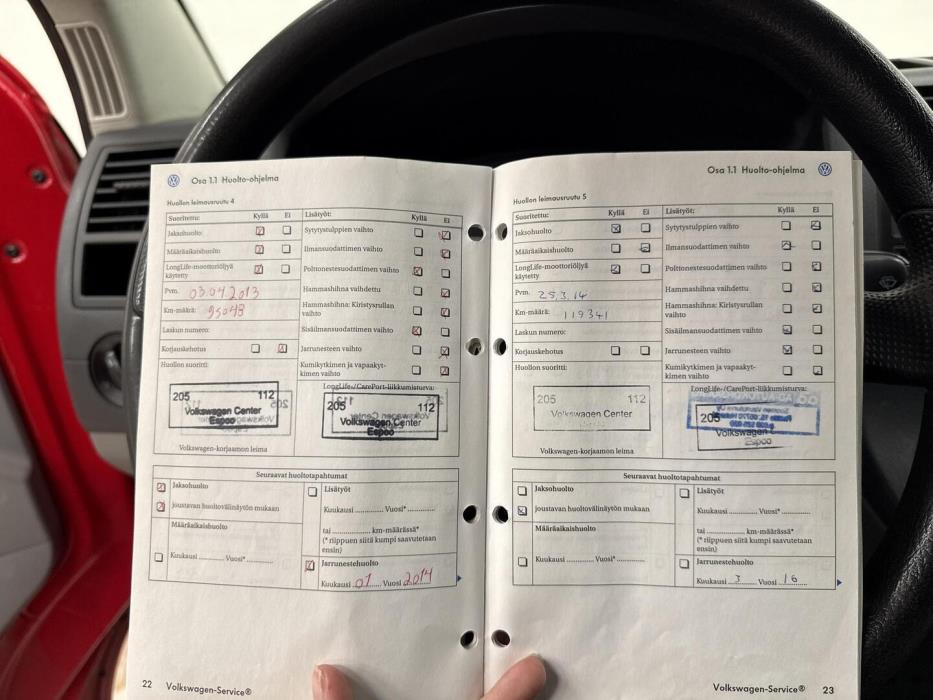 Osa 1.1 Huolto-ohjelma
Huollon leimausruutu 4
Suoritettu: Kyllä Ei
Jaksohuolto:
Määräaikaishuolto:
LongLife-moottoriöljyä
käytetty
Pvm. 03.04.2013
Km-määrä: 95048
Laskun numero:
Korjauskehotus
Huollon suoritti:
205 112
Volkswagen Center
Espoo
Volkswagen-korjaamon leima
Lisätyöt: Kyllä Ei
Sytytystulppien vaihto
Ilmansuodattimen vaihto
Polttonestesuodattimen vaihto
Hammashihna vaihdettu
Hammashihna: Kiristysrullan
vaihto
Sisäilmansuodattimen vaihto
Jarrunesteen vaihto
Kumikytkimen ja vapaakyt-
kimen vaihto
LongLife-/CarePort-liikkumisturva:
205 112
Volkswagen Center
Espoo
Seuraavat huoltotapahtumat
Jaksohuolto
joustavan huoltovälinäytön mukaan
Määräaikaishuolto
Kuukausi ........... Vuosi* ...........
Lisätyöt
Kuukausi ........... Vuosi* ...........
tai ........... km-määrässä*
(* riippuen siitä kumpi saavutetaan
ensin)
Jarrunestehuolto
Kuukausi 01 Vuosi 2014
22 Volkswagen-Service®
Osa 1.1 Huolto-ohjelma
Huollon leimausruutu 5
Suoritettu: Kyllä Ei
Jaksohuolto
Määräaikaishuolto
LongLife-moottoriöljyä
käytetty
Pvm. 25.3.14
Km-määrä: 119341
Laskun numero:
Korjauskehotus
Huollon suoritti:
205 112
Volkswagen Center
Volkswagen-korjaamon leima
Lisätyöt: Kyllä Ei
Sytytystulppien vaihto
Ilmansuodattimen vaihto
Polttonestesuodattimen vaihto
Hammashihna vaihdettu
Hammashihna: Kiristysrullan
vaihto
Sisäilmansuodattimen vaihto
Jarrunesteen vaihto
Kumikytkimen ja vapaakyt-
kimen vaihto
LongLife-/CarePort-liikkumisturva:
205
Volkswagen C
Espoo
Seuraavat huoltotapahtumat
Jaksohuolto
joustavan huoltovälinäytön mukaan
Määräaikaishuolto
Kuukausi ........... Vuosi* ...........
Lisätyöt
Kuukausi ........... Vuosi* ...........
tai ........... km-määrässä*
(* riippuen siitä kumpi saavutetaan
ensin)
Jarrunestehuolto
Kuukausi 3 Vuosi 16
Volkswagen-Service® 23